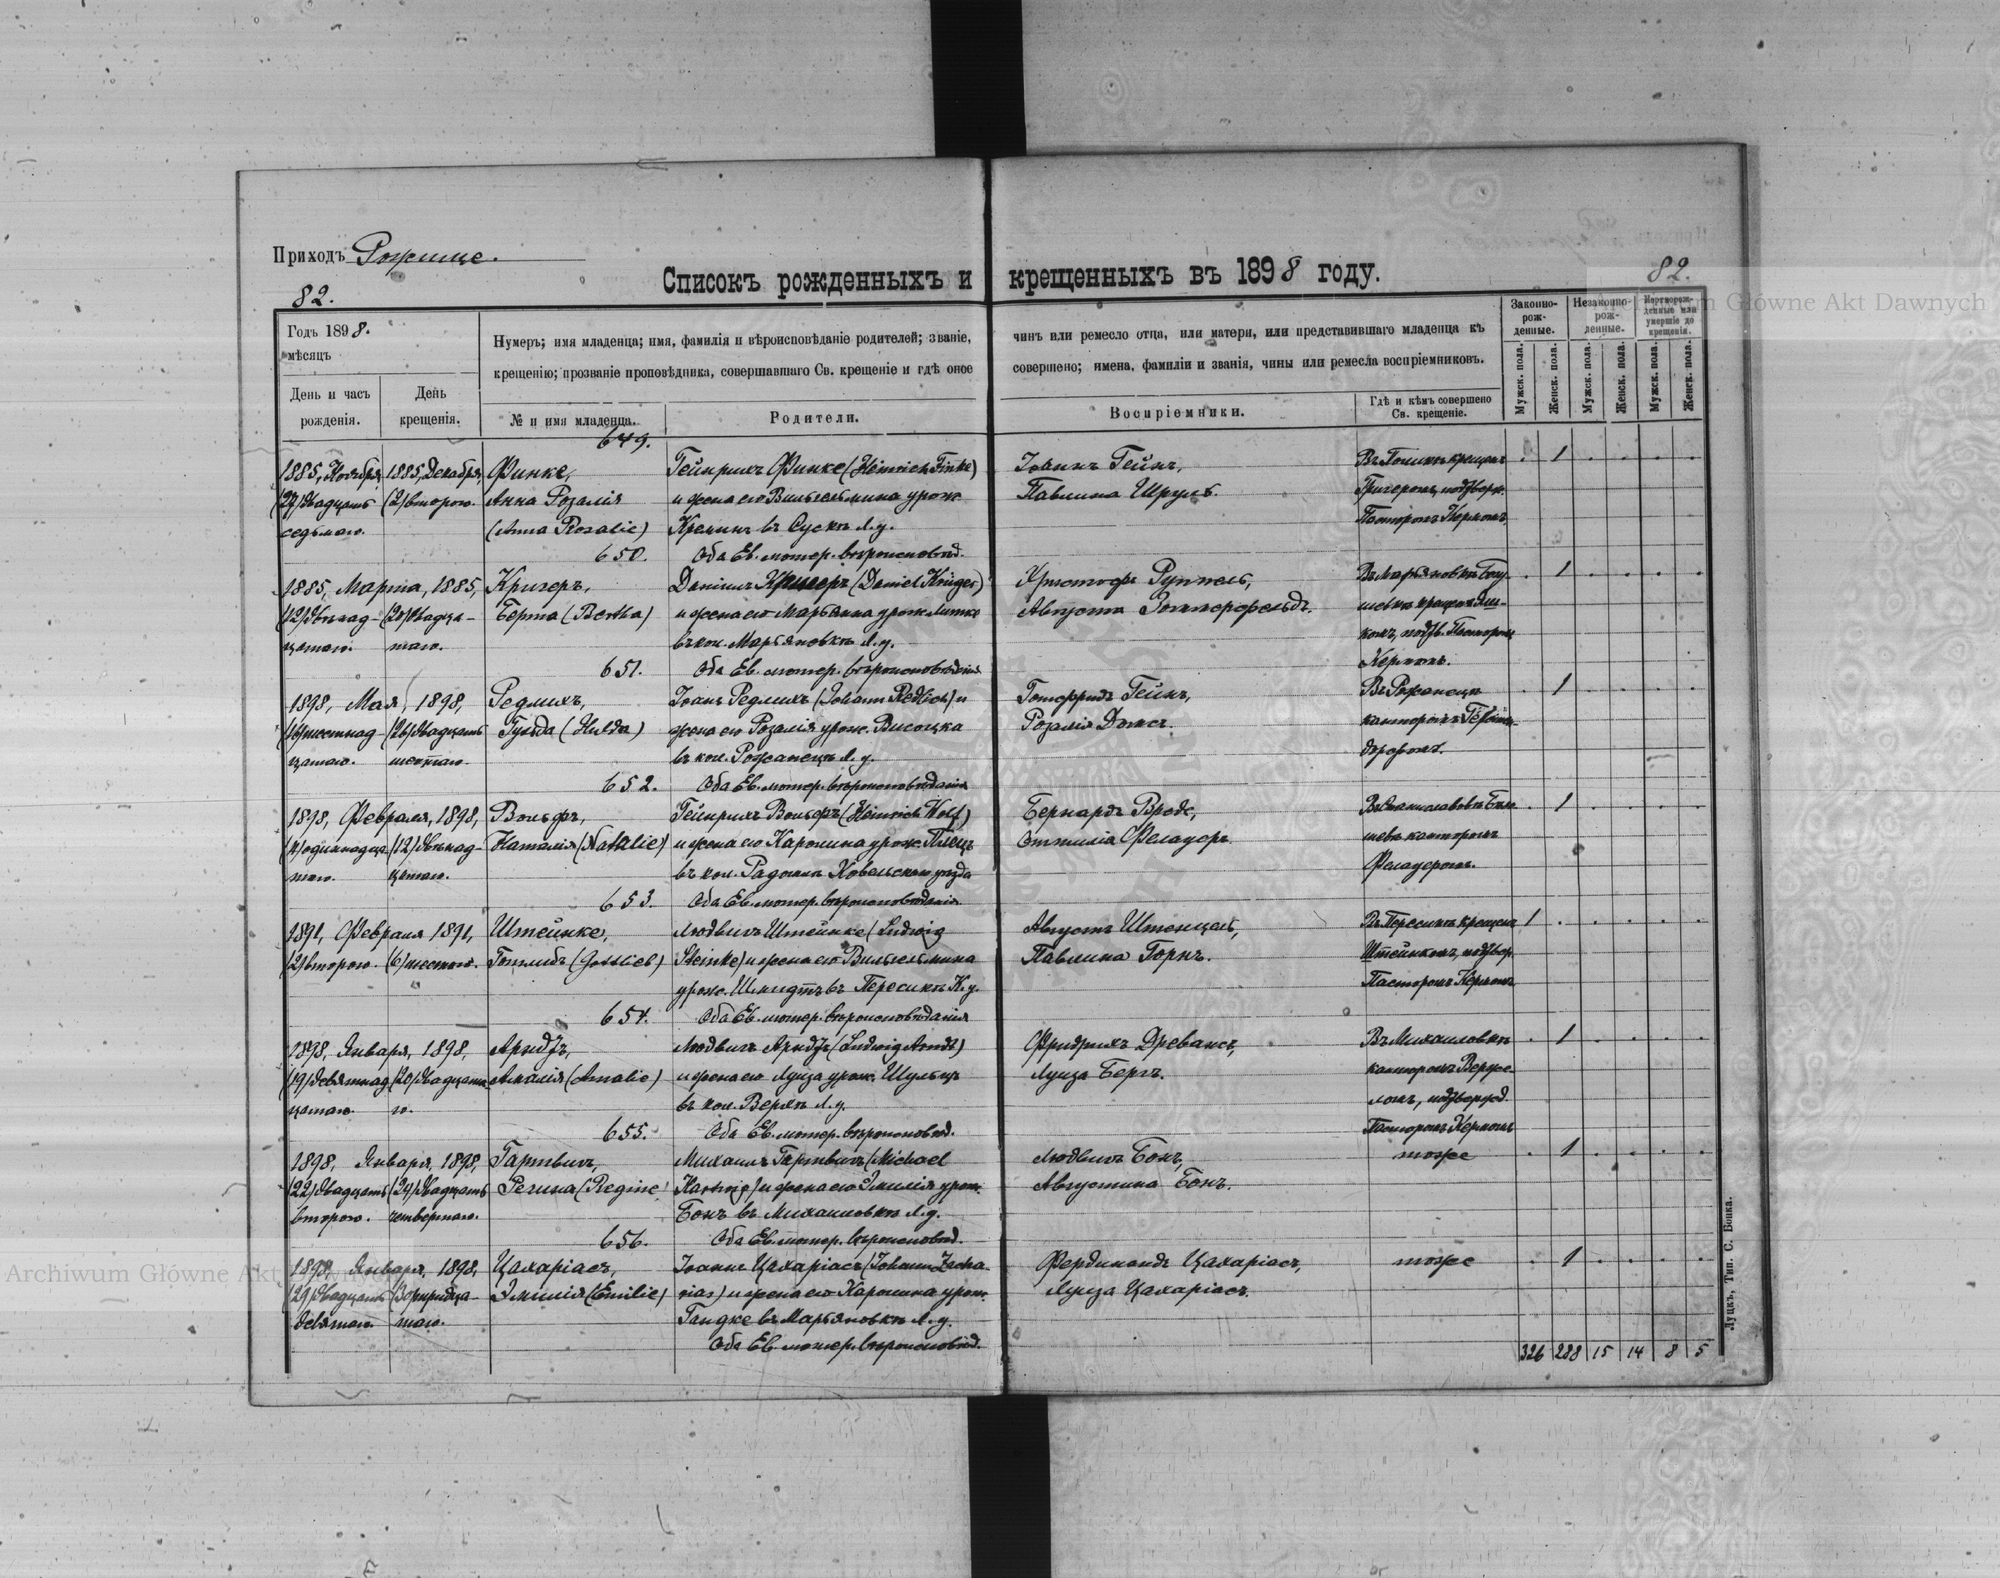 Приходъ Рожище.
82.
82.
Списокъ рожденныхъ и крещенныхъ въ 1898 году.
Годъ 1898.
мѣсяцъ
День и часъ рожденія.
День крещенія.
Нумеръ; имя младенца; имя, фамилія и вѣроисповѣданіе родителей; званіе, чинъ или ремесло отца, или матери, или представившаго младенца къ
крещенію; прозваніе проповѣдника, совершавшаго Св. крещеніе и гдѣ оное совершено; имена, фамиліи и званія, чины или ремесла воспріемниковъ.
№ и имя младенца.
Родители.
Воспріемники.
Гдѣ и кѣмъ совершено Св. крещеніе.
Законно-рож-денные.
Незаконно-рож-денные.
Мертворож-денные или умершіе до крещенія.
Мужск. пола.
Женск. пола.
Мужск. пола.
Женск. пола.
Мужск. пола.
Женск. пола.
649.
1885, Ноября, 1885, Декабря, Финке, Гейнрихъ Финке (Heinrich Finke) Іоганъ Гейнъ, 1
(27) двадцать (2) второго. Анна Розалія и жена его Вильгельмина урож. Павлина Шрульъ.
седьмаго. (Anna Rosalie) въ Сускѣ Л.у. Пасторомъ Кермомъ
650. Оба Ев. лютер. вѣроисповѣд.
1885, Марта, 1885, Кригеръ, Даніилъ Кригеръ (Daniel Krüger) Христофъ Руппель, 1
(12) двѣнад- (20) двадца- Берта (Bertha) и жена его Марьянна урож. Литке Августа Зоммерфельдъ.
цатаго. таго. въ кол. Марьяновкѣ Л.у. подтв. Пасторомъ
651. Оба Ев. лютер. вѣроисповѣданія Кермомъ.
1898, Мая, 1898, Редлихъ, Іоганъ Редлихъ (Johann Redlich) и Готфридъ Гейнъ, Въ Рожанецѣ 1
(16) шестнад (26) двадцать Гульда (Hulda) жена его Розалія урож. Висоцка Розалія
цатаго. шестаго. въ кол. Рожанецъ Л.у.
652. Оба Ев. лютер. вѣроисповѣданія
1898, Февраля, 1898, Вольфъ, Гейнрихъ Вольфъ (Heinrich Wolf) Бернардъ 1
одиннадца (12) двѣнад- Наталія (Nathalie) и жена его Каролина урож. Отилія Феладеръ. канторомъ
таго. цатаго. въ кол. Радомлѣ Ковельскаго уѣзда Феладеромъ.
653. Оба Ев. лютер. вѣроисповѣданія
1891, Февраля 1891, Штейнке, Людвигъ Штейнке (Ludwig Августъ Штенцель, 1
(2) второго. (6) шестого. Готлибъ (Gottlieb) Steinke) и жена его Вильгельмина Павлина Горнъ. Штейнкомъ, подтвер.
урож. Шмидтъ въ Пересикѣ Л.у. Пасторомъ Кермомъ
654. Оба Ев. лютер. вѣроисповѣданія
1898, Января, 1898, Арндтъ, Людвигъ Арндтъ (Ludwig Arndt) Фридрихъ Древансъ, Въ Михаиловкѣ 1
(19) девятнад (20) двадцата Амалія (Amalie) и жена его Луиза урож. Шульцъ Луиза Бергъ. канторомъ
цатаго. го. въ кол. Верхѣ Л.у. подтвержд.
655. Оба Ев. лютер. вѣроисповѣд. Пасторомъ Кермомъ
1898, Января, 1898, Гартвигъ, Михаилъ Гартвигъ (Michael Людвигъ Бонъ, тоже 1
(22) двадцать (24) двадцать Регина (Regine) Hartwig) и жена его Эмилія урож. Августина Бонъ.
второго. четвертаго. Бонъ въ Михаиловкѣ Л.у.
656. Оба Ев. лютер. вѣроисповѣд.
1898, Января, 1898, Цахаріасъ, Іоганъ Цахаріасъ (Johann Zacha- Фердинандъ Цахаріасъ, тоже 1
(29) двадцать (30) тридца- Эмилія (Emilie) rias) и жена его Каролина урож. Луиза Цахаріасъ.
девятаго. таго. Гандке въ Марьяновкѣ Л.у.
Оба Ев. лютер. вѣроисповѣд.
326 288 15 14 8 5
Луцкъ, Тип. С. Бонка.
Archiwum Główne Akt Dawnych
Archiwum Główne Akt